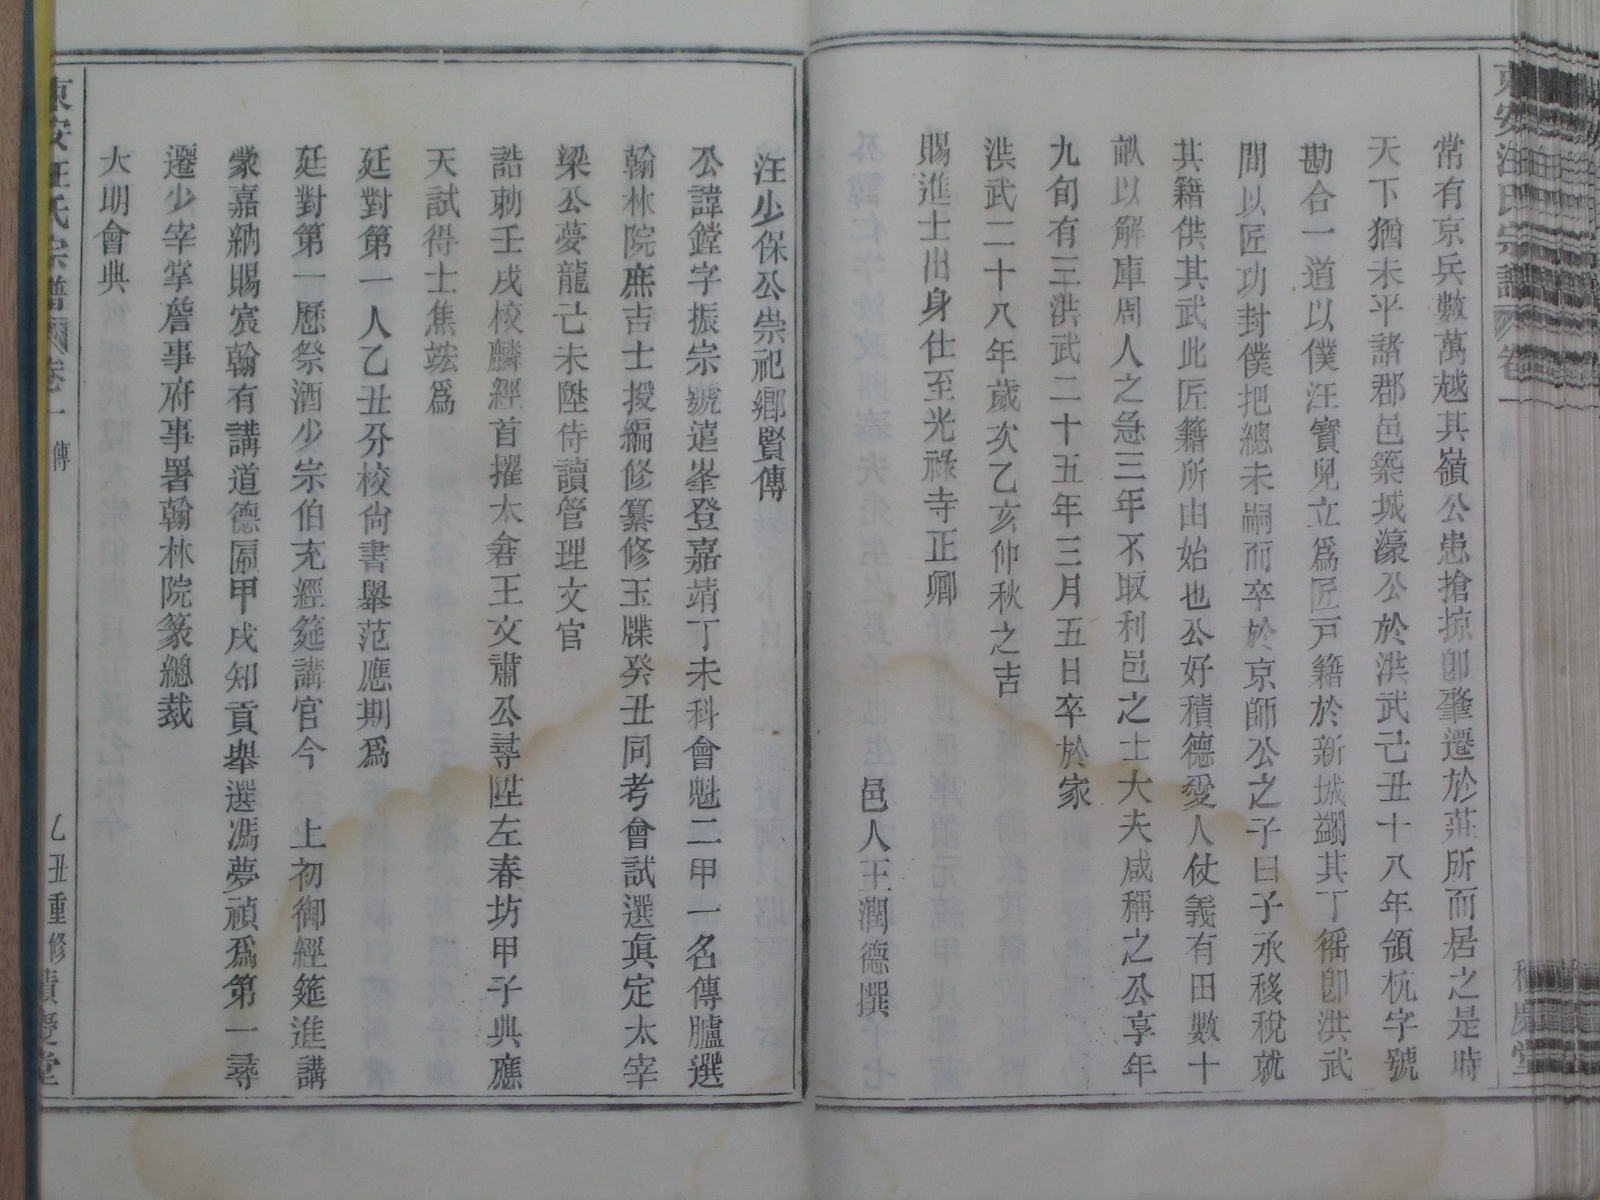 東安汪氏宗譜 卷一
積慶堂
常有京兵數萬越其嶺公患搶掠卽肇遷於莊所而居之是時
天下猶未平諸郡邑築城濠公於洪武己丑十八年領杭字號
勘合一道以僕汪寶兒立爲匠戸籍於新城蠲其丁徭卽洪武
間以匠功封僕把總未嗣而卒於京師公之子曰子承移稅就
其籍供其武此匠籍所由始也公好積德愛人仗義有田數十
畝以解庫周人之急三年不取利邑之士大夫咸稱之公享年
九旬有三洪武二十五年三月五日卒於家
洪武二十八年歲次乙亥仲秋之吉
賜進士出身仕至光祿寺正卿
邑人王潤德撰
汪少保公崇祀鄉賢傳
公諱鏜字振宗號遠峯登嘉靖丁未科會魁二甲一名傳臚選
翰林院庶吉士授編修纂修玉牒癸丑同考會試選眞定太宰
梁公夢龍己未陞侍讀管理文官
誥勅壬戌校麟經首擢太倉王文肅公尋陞左春坊甲子典應
天試得士焦竑爲
廷對第一人乙丑分校尙書舉范應期爲
廷對第一歷祭酒少宗伯充經筵講官今 上初御經筵進講
蒙嘉納賜宸翰有講道德匾甲戌知貢舉選馮夢禎爲第一尋
遷少宰掌詹事府事署翰林院篆總裁
大明會典
東安汪氏宗譜 卷一 傳
乙丑重修積慶堂